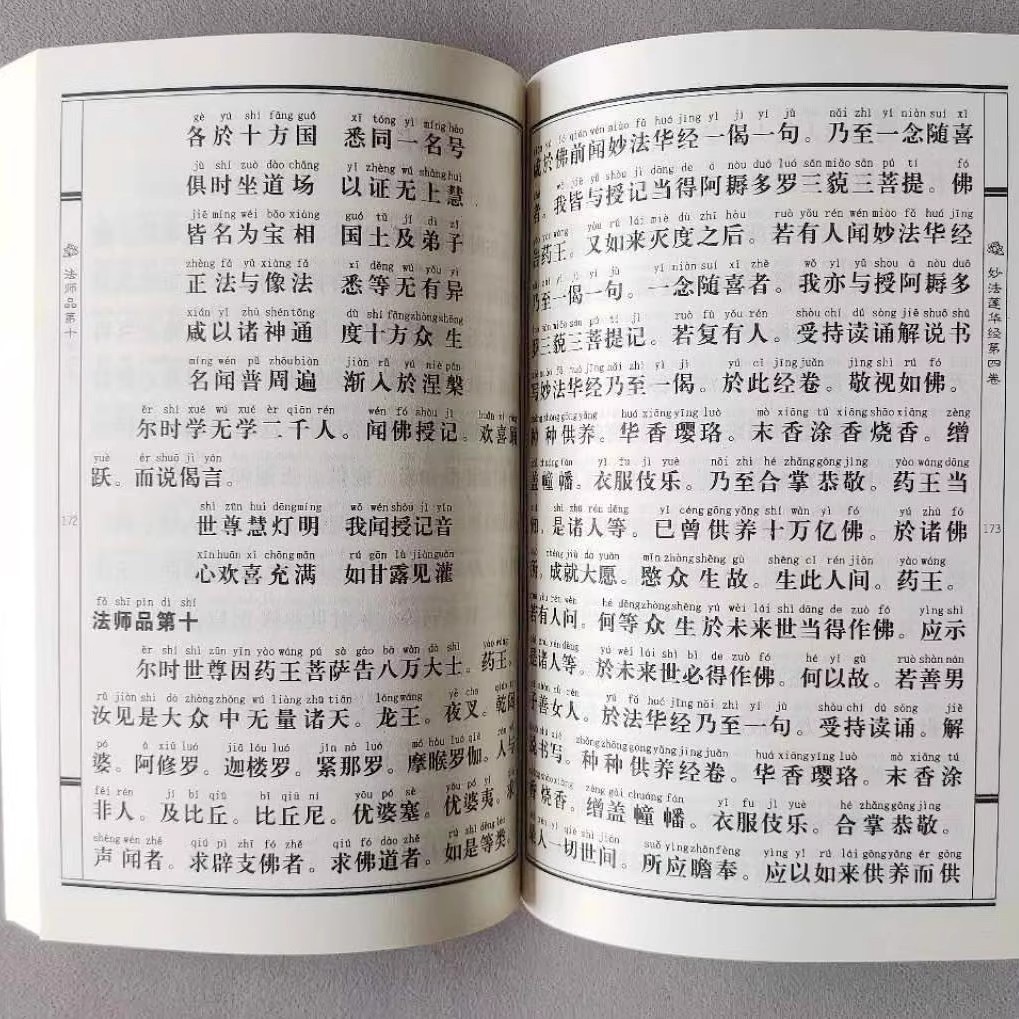 gè yú shí fāng guó xī tóng yì míng hào
各於十方国 悉同一名号
jù shí zuò dào chǎng yǐ zhèng wú shàng huì
俱时坐道场 以证无上慧
jiē míng wéi bǎo xiàng guó tǔ jí dì zǐ
皆名为宝相 国土及弟子
zhèng fǎ yǔ xiàng fǎ xī děng wú yǒu yì
正法与像法 悉等无有异
xián yǐ zhū shén tōng dù shí fāng zhòng shēng
咸以诸神通 度十方众生
míng wén pǔ zhōu biàn jiàn rù yú niè pán
名闻普周遍 渐入於涅槃
ěr shí xué wú xué èr qiān rén wén fó shòu jì huān xǐ yǒng
尔时学无学二千人。闻佛授记。欢喜踊
yuè ér shuō jì yán
跃。而说偈言。
shì zūn huì dēng míng wǒ wén shòu jì yīn
世尊慧灯明 我闻授记音
xīn huān xǐ chōng mǎn rú gān lù jiàn guàn
心欢喜充满 如甘露见灌
fǎ shī pǐn dì shí
法师品第十
ěr shí shì zūn yīn yào wáng pú sà gào bā wàn dà shì yào wáng
尔时世尊因药王菩萨告八万大士。药王,
rǔ jiàn shì dà zhòng zhōng wú liàng zhū tiān lóng wáng yè chā
汝见是大众中无量诸天。龙王。夜叉。乾闼
pó ā xiū luó jiā lóu luó jǐn nà luó mó hóu luó qié rén
婆。阿修罗。迦楼罗。紧那罗。摩睺罗伽。人与
fēi rén jí bǐ qiū bǐ qiū ní yōu pó sè yōu pó yí
非人。及比丘。比丘尼。优婆塞。优婆夷。求
shēng wén zhě qiú pì zhī fó zhě qiú fó dào zhě rú shì děng lèi
声闻者。求辟支佛者。求佛道者。如是等类。
法师品第十
172
yú fó qián wén miào fǎ huá jīng yí jì yí jù nǎi zhì yí niàn suí xǐ
咸於佛前闻妙法华经一偈一句。乃至一念随喜
wǒ jiē yǔ shòu jì dāng dé ā nòu duō luó sān miǎo sān pú tí fó
者。我皆与授记当得阿耨多罗三藐三菩提。佛
yào wáng yòu rú lái miè dù zhī hòu ruò yǒu rén wén miào fǎ huá jīng
告药王。又如来灭度之后。若有人闻妙法华经
zhì yí jì yí jù yí niàn suí xǐ zhě wǒ yì yǔ shòu ā nòu duō
乃至一偈一句。一念随喜者。我亦与授阿耨多
sān miǎo sān pú tí jì ruò fù yǒu rén shòu chí dú sòng jiě shuō shū
罗三藐三菩提记。若复有人。受持读诵解说书
miào fǎ huá jīng nǎi zhì yí jì yú cǐ jīng juàn jìng shì rú fó
写妙法华经乃至一偈。於此经卷。敬视如佛。
zhǒng gòng yǎng huá xiāng yīng luò mò xiāng tú xiāng shāo xiāng zēng
种种供养。华香璎珞。末香涂香烧香。缯
chuáng fān yī fú jì yuè nǎi zhì hé zhǎng gōng jìng yào wáng dāng
盖幢幡。衣服伎乐。乃至合掌恭敬。药王当
shì zhū rén děng yǐ céng gòng yǎng shí wàn yì fó yú zhū fó
知,是诸人等。已曾供养十万亿佛。於诸佛
chéng jiù dà yuàn mǐn zhòng shēng gù shēng cǐ rén jiān yào wáng
所,成就大愿。愍众生故。生此人间。药王。
yǒu rén wèn hé děng zhòng shēng yú wèi lái shì dāng dé zuò fó yìng shì
若有人问。何等众生於未来世当得作佛。应示
zhū rén děng yú wèi lái shì bì dé zuò fó hé yǐ gù ruò shàn nán
是诸人等。於未来世必得作佛。何以故。若善男
shàn nǚ rén yú fǎ huá jīng nǎi zhì yí jù shòu chí dú sòng jiě
子善女人。於法华经乃至一句。受持读诵。解
shū xiě zhǒng zhǒng gòng yǎng jīng juàn huá xiāng yīng luò mò xiāng tú
说书写。种种供养经卷。华香璎珞。末香涂
shāo xiāng zēng gài chuáng fān yī fú jì yuè hé zhǎng gōng jìng
香烧香。缯盖幢幡。衣服伎乐。合掌恭敬。
rén yí qiè shì jiān suǒ yīng zhān fèng yīng yǐ rú lái gòng yǎng ér gòng
是人一切世间。所应瞻奉。应以如来供养而供
妙法莲华经第四卷
173